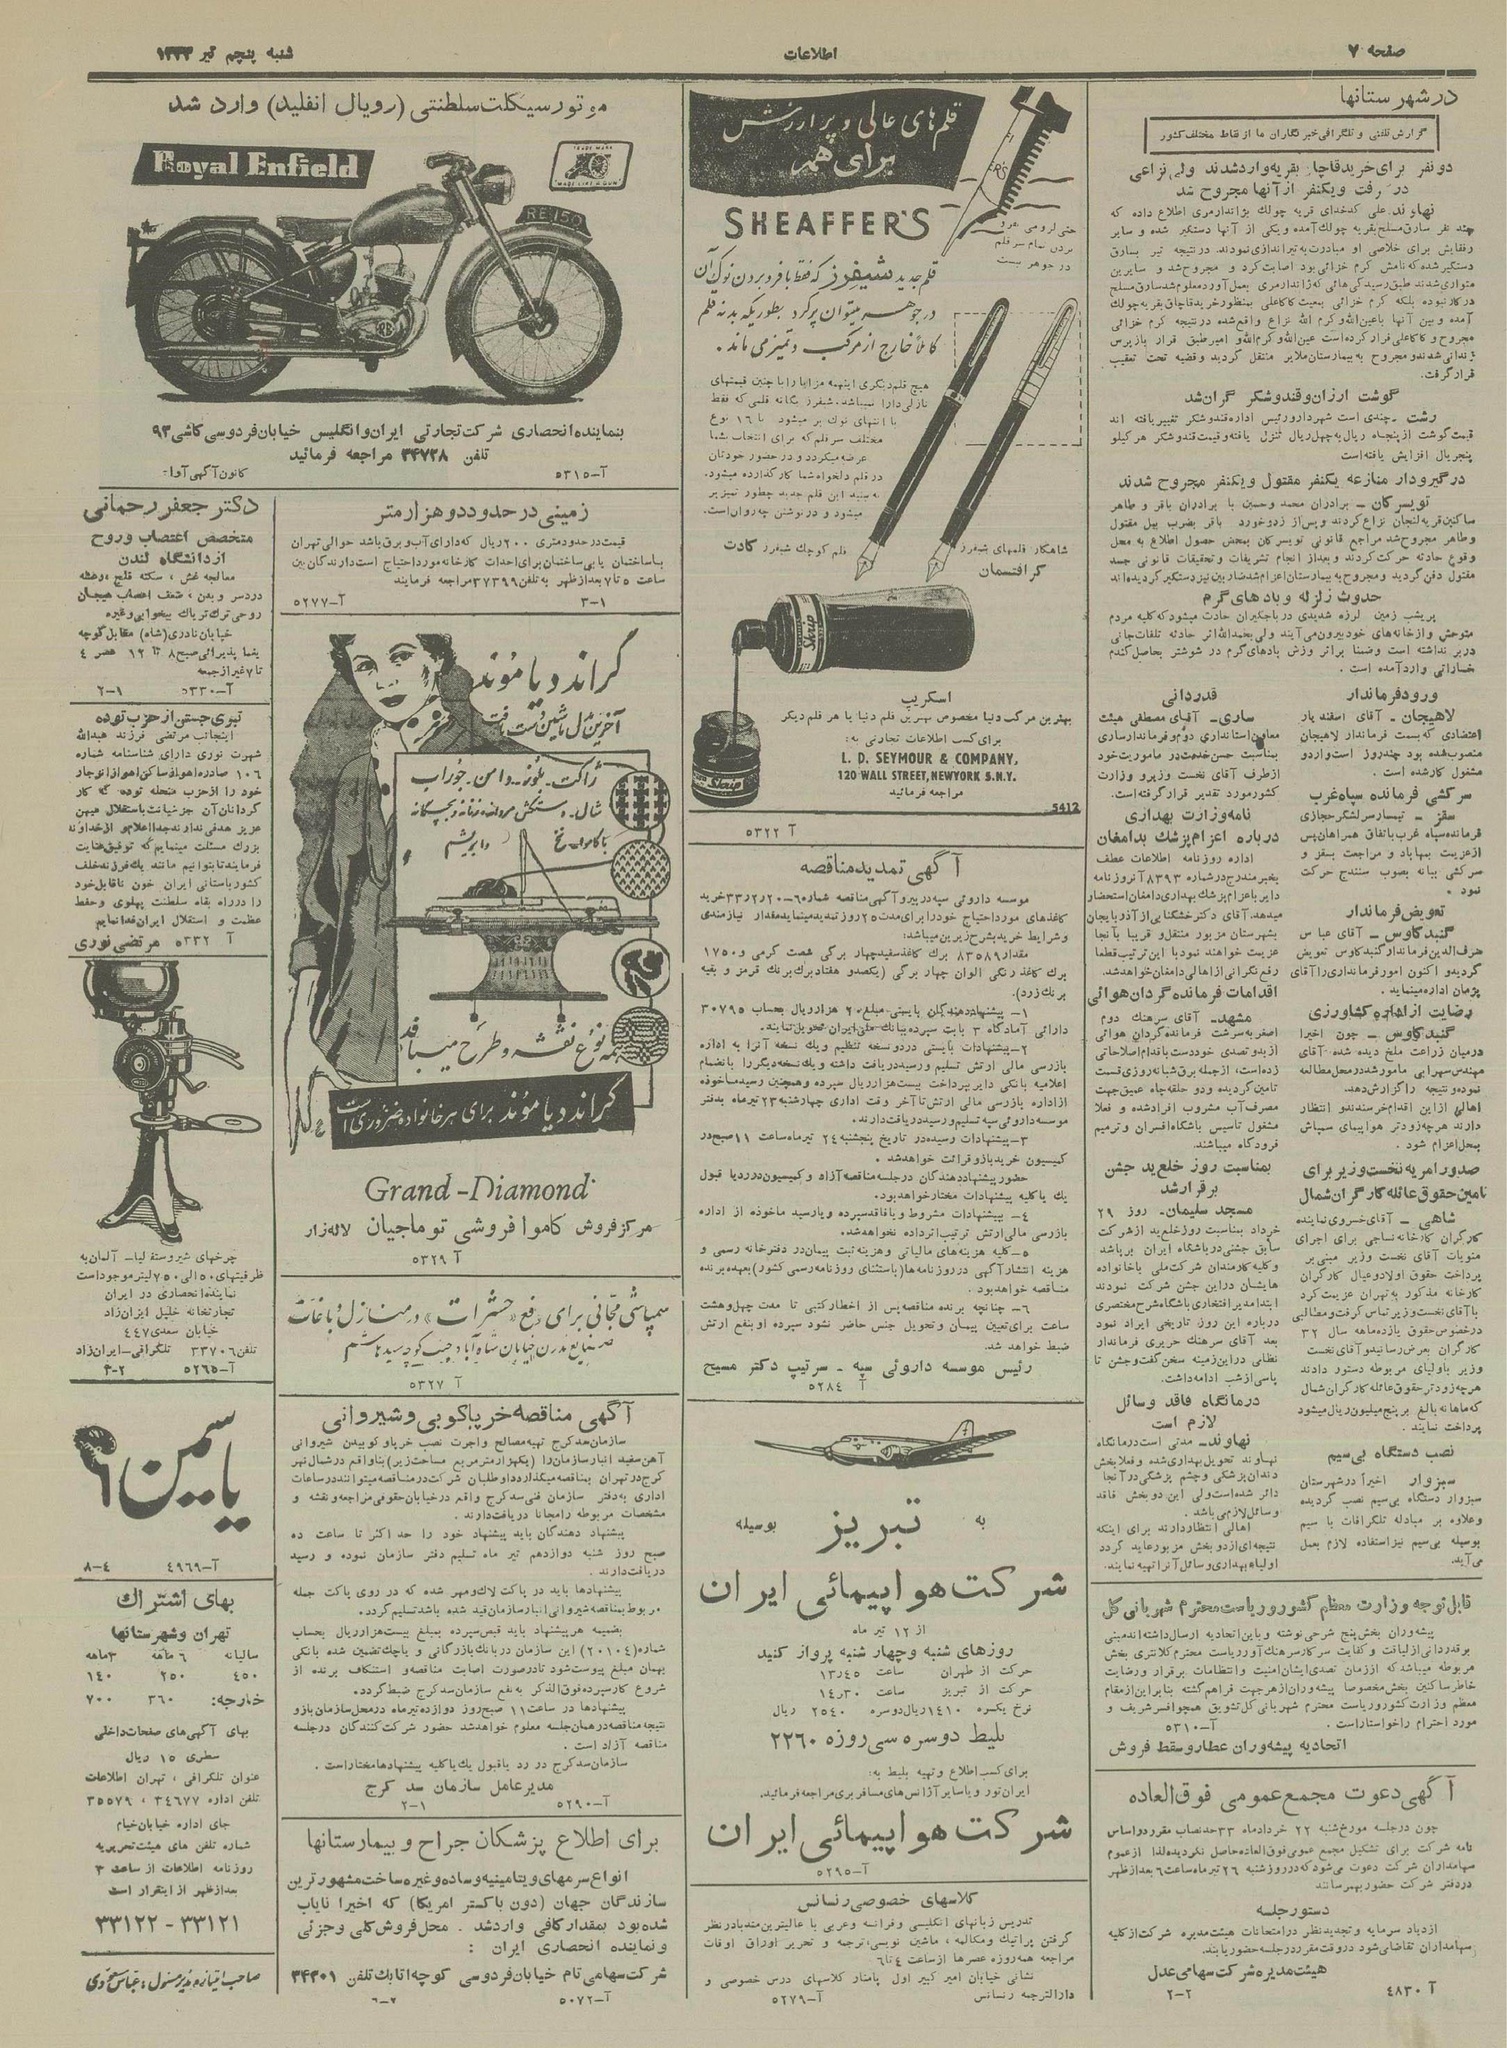 صفحه ۷
اطلاعات
شنبه پنجم تیر ۱۳۳۳
درشهرستانها
گزارش تلفنی و تلگرافی خبرنگاران ما از نقاط مختلف کشور
دونفر برای خرید قاچاق بقریه وارد شدند ولی نزاعی
در گرفت ویکنفر از آنها مجروح شد
نهاوند_ علی کدخدای قریه چولك بژاندارمری اطلاع داده که
چند نفر سارق مسلح بقریه چولك آمده ویکی از آنها دستگیر شده و سایر
رفقایش برای خلاصی او مبادرت به تیراندازی نمودند. درنتیجه تیر بسارق
دستگیر شده که نامش کرم خزائی بود اصابت کرد و مجروح شد و سایرین
متواری شدند طبق رسیدگی هائی که ژاندارمری بعمل آورد معلوم شد سارق مسلح
در کار نبوده بلکه کرم خزائی بمعیت کاکاعلی بمنظور خرید قاچاق بقریه چولك
آمده و بین آنها باعین‌الله وکرم الله نزاع واقع شده درنتیجه کرم خزائی
مجروح و کاکاعلی فرار کرده است عین‌الله وکرم‌الله و امیر طبق قرار بازپرس
زندانی شدند و مجروح به بیمارستان ملایر منتقل گردید و قضیه تحت تعقیب
قرار گرفت.
گوشت ارزان وقند و شکر گران شد
رشت _ چندی است شهردار و رئیس اداره قند و شکر تغییر یافته اند
قیمت گوشت از پنجاه ریال به چهل ریال تنزل یافته و قیمت قند و شکر هر کیلو
پنج ریال افزایش یافته است
در گیرودار منازعه یکنفر مقتول ویکنفر مجروح شدند
تویسرکان _ برادران محمد وحسین با برادران باقر و طاهر
ساکنین قریه لنجان نزاع کردند و پس از زد و خورد باقر بضرب بیل مقتول
وطاهر مجروح شد مراجع قانونی تویسرکان بمحض حصول اطلاع به محل
وقوع حادثه حرکت کردند و بعد از انجام تشریفات و تحقیقات قانونی جسد
مقتول دفن گردید و مجروح به بیمارستان اعزام شد ضاربین نیز دستگیر گردیده‌اند
حدوث زلزله و بادهای گرم
پریشب زمین لرزه شدیدی در باجگیران حادث میشود که کلیه مردم
متوحش و از خانه‌های خود بیرون می‌آیند ولی بحمدالله اثر حادثه تلفات جانی
در بر نداشته است وضمنا بر اثر وزش بادهای گرم در شوشتر بحاصل گندم
خساراتی وارد آمده است .
ورود فرماندار
لاهیجان _ آقای اسفندیار
اعتضادی که بسمت فرماندار لاهیجان
منصوب شده بود چند روز است وارد و
مشغول کار شده است .
سرکشی فرمانده سپاه غرب
سقز _ تیمسار سرلشکر حجازی
فرمانده سپاه غرب باتفاق همراهان پس
از عزیمت بمهاباد و مراجعت بسقز و
سرکشی بپانه بصوب سنندج حرکت
نمود .
تعویض فرماندار
گنبدکاوس _ آقای عباس
شرف‌الدین فرماندار گنبدکاوس تعویض
گردید و اکنون امور فرمانداری را آقای
پژمان اداره مینماید .
رضایت از اداره کشاورزی
گنبدکاوس _ چون اخیرا
درمیان زراعت ملخ دیده شده آقای
مهندس سهرابی مامور شد در محل مطالعه
نموده و نتیجه را گزارش دهد.
اهالی از این اقدام خرسند و انتظار
دارند هرچه زودتر هواپیمای سمپاش
بمحل اعزام شود .
صدور امریه نخست وزیر برای
تامین حقوق عائله کارگران شمال
شاهی _ آقای خسروی نماینده
کارگران کارخانه نساجی برای اجرای
منویات آقای نخست وزیر مبنی بر
پرداخت حقوق اولاد و عیال کارگران
کارخانه مذکور به تهران عزیمت کرد
با آقای نخست وزیر تماس گرفت و مطالبی
درخصوص حقوق یازده ماهه سال ۳۲
کارگران بعرض رسانید و آقای نخست
وزیر باولیای مربوطه دستور دادند
هرچه زودتر حقوق عائله کارگران شمال
که ماهانه بالغ بر پنج میلیون ریال میشود
پرداخت نمایند .
نصب دستگاه بی سیم
سبزوار اخیرا در شهرستان
سبزوار دستگاه بی سیم نصب گردیده
و علاوه بر مبادله تلگرافات با سیم
بوسیله بی سیم نیز استفاده لازم بعمل
می‌آید.
قدردانی
ساری_ آقای مصطفی هیئت
معاون استانداری دوم و فرماندار ساری
بمناسبت حسن خدمت در ماموریت خود
از طرف آقای نخست وزیر و وزارت
کشور مورد تقدیر قرار گرفته است.
نامه وزارت بهداری
درباره اعزام پزشك بدامغان
اداره روزنامه اطلاعات عطف
بخبر مندرج در شماره ۸۳۹۳ آنروزنامه
دایر باعزام پزشك بهداری دامغان استحضار
میدهد. آقای دکتر خشگنابی از آذربایجان
بشهرستان مزبور منتقل و قریبا بآنجا
عزیمت خواهند نمود با این ترتیب قطعا
رفع نگرانی از اهالی دامغان خواهد شد.
اقدامات فرمانده گردان هوائی
مشهد_ آقای سرهنگ دوم
اصغر به سرشت فرمانده گردان هوائی
از بدو تصدی خود دست باقدام اصلاحاتی
زده است، از جمله برق شبانه روزی قسمت
تامین گردیده و دو حلقه چاه عمیق جهت
مصرف آب مشروب افراد شده و فعلا
مشغول تاسیس باشگاه افسران و ترمیم
فرودگاه میباشند.
بمناسبت روز خلع ید جشن
برقرار شد
مسجد سلیمان_ روز ۲۹
خرداد بمناسبت روز خلع ید از شرکت
سابق جشنی در باشگاه ایران برپا شد
و کلیه کارمندان شرکت ملی با خانواده
هایشان در این جشن شرکت نمودند
ابتدا مدیر افتخاری باشگاه شرح مختصری
درباره این روز تاریخی ایراد نمود
بعد آقای سرهنگ حریری فرماندار
نظامی در این زمینه سخن گفت و جشن تا
پاسی از شب ادامه داشت.
درمانگاه فاقد وسائل
لازم است
نهاوند_ مدتی است درمانگاه
نهاوند تحویل بهداری شده و فعلا بخش
دندان پزشکی و چشم پزشکی در آنجا
دائر شده است ولی این دو بخش فاقد
وسائل لازم می باشد .
اهالی انتظار دارند برای اینکه
نتیجه‌ای از دو بخش مزبور عاید گردد
اولیاء بهداری وسائل آنرا تهیه نمایند.
قابل توجه وزارت معظم کشور و ریاست محترم شهربانی کل
پیشه‌وران بخش پنج شرحی نوشته و باین اتحادیه ارسال داشته‌اند مبنی
بر قدردانی از لیاقت و کفایت سرکار سرهنگ آور ریاست محترم کلانتری بخش
مربوطه میباشد که از زمان تصدی ایشان امنیت و انتظامات برقرار و رضایت
خاطر ساکنین بخش مخصوصا پیشه‌وران از هر جهت فراهم گشته بنابراین از مقام
معظم وزارت کشور و ریاست محترم شهربانی کل تشویق همچو افسر شریف و
مورد احترام را خواستار است . آ-۵۳۱۰
اتحادیه پیشه‌وران عطار و سقط فروش
آگهی دعوت مجمع عمومی فوق‌العاده
چون در جلسه مورخ شنبه ۲۲ خرداد ماه ۳۳ حد نصاب مقرر در اساس
نامه شرکت برای تشکیل مجمع عمومی فوق العاده حاصل نگردید لذا از عموم
سهامداران شرکت دعوت می شود که در روز شنبه ۲۶ تیر ماه ساعت ۶ بعد از ظهر
در دفتر شرکت حضور بهم رسانند
دستور جلسه
ازدیاد سرمایه و تجدید نظر در امتحانات هیئت مدیره شرکت از کلیه
سهامداران تقاضا می شود در وقت مقرر در جلسه حضور یابند.
هیئت مدیره شرکت سهامی عدل
آ ۴۸۳۰ ۲-۲
قلم‌های عالی و پر ارزش
برای همه
SHEAFFER'S
حتی لزومی بفرو
بردن تمام سر قلم
در جوهر نیست
قلم جدید شیفرز که فقط با فرو بردن نوک آن
در جوهر میتوان پر کرد بطوریکه بدنه قلم
کاملاً خارج از مرکب و تمیز می ماند .
هیچ قلم دیگری اینهمه مزایا را با چنین قیمتهای
نازلی دارا نمیباشد. شیفرز یگانه قلمی که فقط
با انتهای نوك پر میشود با ۱۶ نوع
مختلف سر قلم که برای انتخاب شما
عرضه میگردد و در حضور خودتان
در قلم دلخواه شما کار گذارده میشود.
به بینید این قلم جدید چطور تمیز پر
میشود و در نوشتن چه روان است.
شاهکار قلمهای شیفرز
کرافتسمان
قلم کوچك شیفرز کادت
Skrip
Skrip
اسکریپ
بهترین مرکب دنیا مخصوص بهترین قلم دنیا یا هر قلم دیگر
برای کسب اطلاعات تجارتی به:
L. D. SEYMOUR & COMPANY,
120 WALL STREET, NEWYORK S.N.Y.
مراجعه فرمائید
5412
آ ۵۳۲۲
آگهی تمدید مناقصه
موسسه داروئی سپه در پیرو آگهی مناقصه شماره ۶-۲۰ر۲ر۳۳ خرید
کاغذهای مورد احتیاج خود را برای مدت ۲۵ روز تمدید مینماید مقدار نیازمندی
و شرایط خرید بشرح زیرین میباشد:
مقدار ۸۳۵۸۹ برك کاغذ سفید چهار برگی شصت گرمی و ۱۷۵۰
برك کاغذ رنگی الوان چهار برگی (یکصد و هفتاد برك برنك قرمز و بقیه
برنك زرد).
۱_ پیشنهاد دهندگان بایستی مبلغ ۲۰ هزار ریال بحساب ۳۰۷۹۵
دارائی آمادگاه ۳ بابت سپرده ببانك ملی ایران تحویل نمایند.
۲_پیشنهادات بایستی در دو نسخه تنظیم و یك نسخه آنرا به اداره
بازرسی مالی ارتش تسلیم و رسید دریافت داشته و یك نسخه دیگر را بانضمام
اعلامیه بانکی دایر بپرداخت بیست هزار ریال سپرده و همچنین رسید ماخوذه
از اداره بازرسی مالی ارتش تا آخر وقت اداری چهارشنبه ۲۳ تیر ماه بدفتر
موسسه داروئی سپه تسلیم و رسید دریافت دارند.
۳_پیشنهادات رسیده در تاریخ پنجشنبه ۲۴ تیر ماه ساعت ۱۱ صبح در
کمیسیون خرید باز و قرائت خواهد شد .
حضور پیشنهاد دهندگان در جلسه مناقصه آزاد و کمیسیون در رد یا قبول
یك یا کلیه پیشنهادات مختار خواهد بود.
۴_ پیشنهادات مشروط و یا فاقد سپرده و یا رسید ماخوذه از اداره
بازرسی مالی ارتش ترتیب اثر داده نخواهد شد.
۵_کلیه هزینه های مالیاتی و هزینه ثبت پیمان در دفترخانه رسمی و
هزینه انتشار آگهی در روزنامه‌ها (باستثنای روزنامه رسمی کشور) بعهده برنده
مناقصه خواهد بود .
۶_ چنانچه برنده مناقصه پس از اخطار کتبی تا مدت چهل و هشت
ساعت برای تعیین پیمان و تحویل جنس حاضر نشود سپرده او بنفع ارتش
ضبط خواهد شد.
رئیس موسسه داروئی سپه _ سرتیپ دکتر مسیح
آ ۵۲۸۴
به تبریز بوسیله
شرکت هواپیمائی ایران
از ۱۲ تیر ماه
روزهای شنبه و چهار شنبه پرواز کنید
حرکت از طهران ساعت ۱۳ر۴۵
حرکت از تبریز ساعت ۱۴ر۳۰
نرخ یکسره ۱۴۱۰ ریال دوسره ۲۵۴۰ ریال
بلیط دوسره سی روزه ۲۲۶۰
برای کسب اطلاع و تهیه بلیط به:
ایران تور و یا سایر آژانس های مسافربری مراجعه فرمائید.
شرکت هواپیمائی ایران
آ-۵۲۹۵
کلاسهای خصوصی رنسانس
تدریس زبانهای انگلیسی و فرانسه و عربی با عالیترین متد با در نظر
گرفتن پراتیك و مکالمه ، ماشین نویسی، ترجمه و تحریر اوراق اوقات
مراجعه همه روزه عصرها از ساعت ۴ تا ۶
نشانی خیابان امیر کبیر اول پامنار کلاسهای درس خصوصی و
دارالترجمه رنسانس آ-۵۲۷۹
موتورسیکلت سلطنتی (رویال انفلید) وارد شد
Royal Enfield
TRADE MARK
"MADE LIKE A GUN"
RE 150
بنماینده انحصاری شرکت تجارتی ایران و انگلیس خیابان فردوسی کاشی ۹۳
تلفن ۳۴۷۳۸ مراجعه فرمائید
آ-۵۳۱۵ کانون آگهی آوا-
زمینی در حدود دو هزار متر
قیمت در حدود متری ۲۰۰ ریال که دارای آب و برق باشد حوالی تهران
با ساختمان یا بی ساختمان برای احداث کارخانه مورد احتیاج است دارندگان بین
ساعت ۵ تا ۷ بعد از ظهر به تلفن ۳۷۳۹۹ مراجعه فرمایند
۳-۱ آ-۵۲۷۷
گراند دیاموند
آخرین مدل ماشین دست بافت
ژاکت _ بلوز _ دامن _ جوراب
شال _ و دستکش مردانه، زنانه و بچگانه
با کاموا _ نخ و ابریشم
همه نوع نقشه و طرح میبافد
گراند دیاموند برای هر خانواده ضروری است
Grand-Diamond
مرکز فروش کاموا فروشی توماجیان لاله زار
آ ۵۳۲۹
سمپاشی مجانی برای رفع «حشرات» در منازل و باغات
آ ۵۳۲۷
آگهی مناقصه خرپاکوبی و شیروانی
سازمان سد کرج تهیه مصالح و اجرت نصب خرپا و کوبیدن شیروانی
آهن سفید انبار سازمان را (یکهزار متر مربع مساحت زیر) بنا واقع در شمال نهر
کرج در تهران بمناقصه میگذارد داوطلبان شرکت در مناقصه میتوانند در ساعات
اداری به دفتر سازمان فنی سد کرج واقع در خیابان حقوقی مراجعه و نقشه و
مشخصات مربوطه را مجانا دریافت دارند .
پیشنهاد دهندگان باید پیشنهاد خود را حد اکثر تا ساعت ده
صبح روز شنبه دوازدهم تیر ماه تسلیم دفتر سازمان نموده و رسید
دریافت دارند .
پیشنهادها باید در پاکت لاك و مهر شده که در روی پاکت جمله
مربوط بمناقصه شیروانی انبار سازمان قید شده باشد تسلیم گردد.
بضمیمه هر پیشنهاد باید قبض سپرده بمبلغ بیست هزار ریال بحساب
شماره (۲۰۱۰۴) این سازمان در بانك بازرگانی و یا چك تضمین شده بانکی
بهمان مبلغ پیوست شود تا در صورت اصابت مناقصه و استنکاف برنده از
شروع کار سپرده فوق الذکر به نفع سازمان سد کرج ضبط گردد.
پیشنهادها در ساعت ۱۱ صبح روز دوازده تیر ماه در محل سازمان باز و
نتیجه مناقصه در همان جلسه معلوم خواهد شد حضور شرکت کنندگان در جلسه
مناقصه آزاد است .
سازمان سد کرج در رد یا قبول یك یا کلیه پیشنهادها مختار است .
مدیر عامل سازمان سد کرج
آ-۵۲۹۰ ۲-۱
برای اطلاع پزشکان جراح و بیمارستانها
انواع سرمهای ویتامینیه و ساده و غیره ساخت مشهورترین
سازندگان جهان (دون باکستر امریکا) که اخیرا نایاب
شده بود بمقدار کافی وارد شد . محل فروش کلی و جزئی
و نماینده انحصاری ایران :
شرکت سهامی تام خیابان فردوسی کوچه اتابك تلفن ۳۴۳۰۱
آ-۵۰۷۲
دکتر جعفر رحمانی
متخصص اعصاب و روح
از دانشگاه لندن
معالجه غش ، سکته فلج ، رعشه
دردسر و بدن ، ضعف اعصاب هیجان
روحی ترك تریاك بیخوابی و غیره
خیابان نادری (شاه) مقابل کوچه
یغما پذیرائی صبح ۸ تا ۱۲ عصر ۴
تا ۷ غیر از جمعه
آ-۵۳۳۰ ۲-۱
تبری جستن از حزب توده
اینجانب مرتضی فرزند عبدالله
شهرت نوری دارای شناسنامه شماره
۱۰۶ صادره اهواز ساکن اهواز انزجار
خود را از حزب منحله توده که کار
گردانان آن جز خیانت باستقلال میهن
عزیز هدفی ندارند جدا اعلام و از خداوند
بزرك مسئلت مینمایم که توفیق عنایت
فرمایند تا بتوانیم مانند یك فرزند خلف
کشور باستانی ایران خون ناقابل خود
را در راه بقاء سلطنت پهلوی و حفظ
عظمت و استقلال ایران فدا نمایم
آ ۵۳۳۲ مرتضی نوری
چرخهای شیر وستفالیا_ آلمان به
ظرفیتهای ۵۰ الی ۷۵۰ لیتر موجود است
نماینده انحصاری در ایران
تجارتخانه خلیل ایران زاد
خیابان سعدی ۴۴۷
تلفن ۳۳۷۰۶ تلگرافی_ایران زاد
آ-۵۲۶۵ ۴-۲
یاسمن ۶
آ-۴۹۶۹ ۸-۴
بهای اشتراك
تهران و شهرستانها
سالیانه ۶ ماهه ۳ ماهه
۴۵۰ ۲۵۰ ۱۴۰
خارجه: ۳۶۰ ۷۰۰
بهای آگهی های صفحات داخلی
سطری ۱۵ ریال
عنوان تلگرافی ، تهران اطلاعات
تلفن اداره ۳۴۶۷۷ ، ۳۵۵۷۹
جای اداره خیابان خیام
شماره تلفن های هیئت تحریریه
روزنامه اطلاعات از ساعت ۳
بعد از ظهر از اینقرار است
۳۳۱۲۱ - ۳۳۱۲۲
صاحب امتیاز و مدیر مسئول : عباس مسعودی